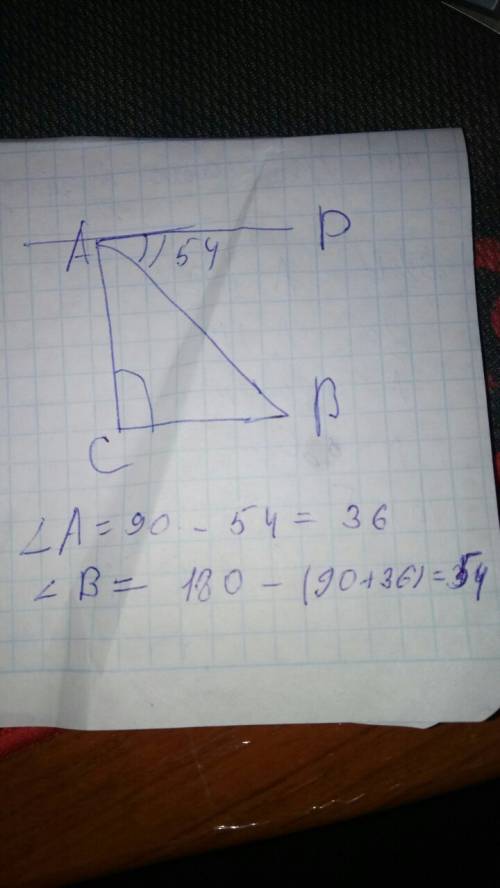 A 54 D
C B
∠A = 90 - 54 = 36
∠B = 180 - (90+36) = 54